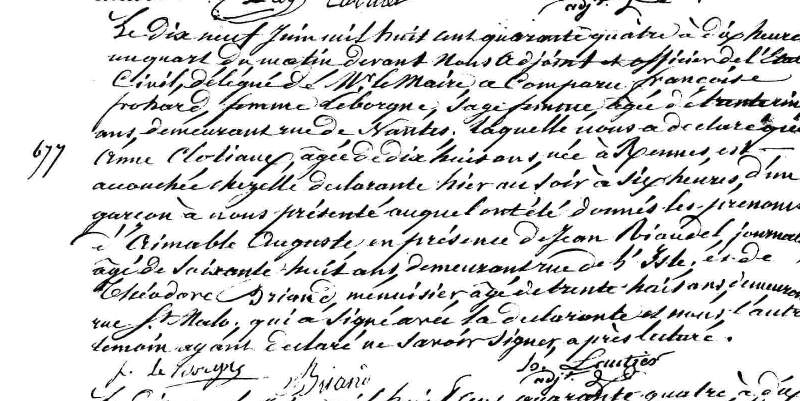 Le dix neuf Juin mil huit cent quarante quatre à dix heures
un quart du matin devant Nous Adjoint et officier de l'Etat
Civil, délégué de Mr. le Maire a Comparu françoise
frohard, femme Leborgne, Sage femme, agée de trente cinq
ans, demeurant rue de Nantes, laquelle nous a declaré que
677
Anne Clotiaux, agée de dix huit ans, née à Rennes, est
accouchée chez elle declarante hier au soir à six heures, d'un
garçon à nous présenté auquel ont été donnés les prenoms
d'Aimable Auguste en présence de Jean Riaudel, journal
âgé de soixante huit ans, demeurant rue de l'Isle, et de
Théodore Briand, menuisier, âgé de trente huit ans, demeurant
rue St. Malo, qui a signé avec la declarante et nous, l'autre
temoin ayant declaré ne savoir signer, après lecture.
f. le Borgne Briand
adjt.
quarante quatre à dix